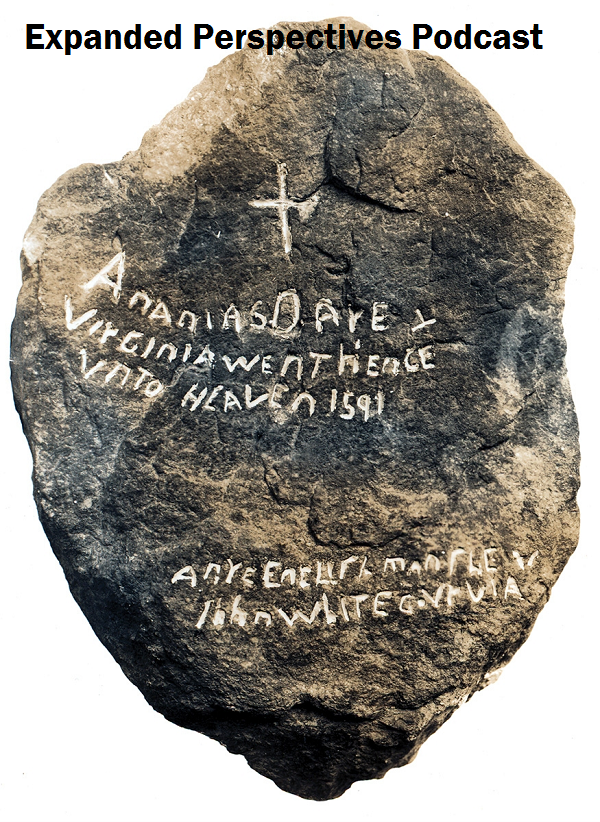 Expanded Perspectives Podcast
ANANIAS DARE &
VIRGINIA WENT HENCE
VNTO HEAVEN 1591
ANYE ENGLISHMAN SHEW
John WHITE GOVR VIA